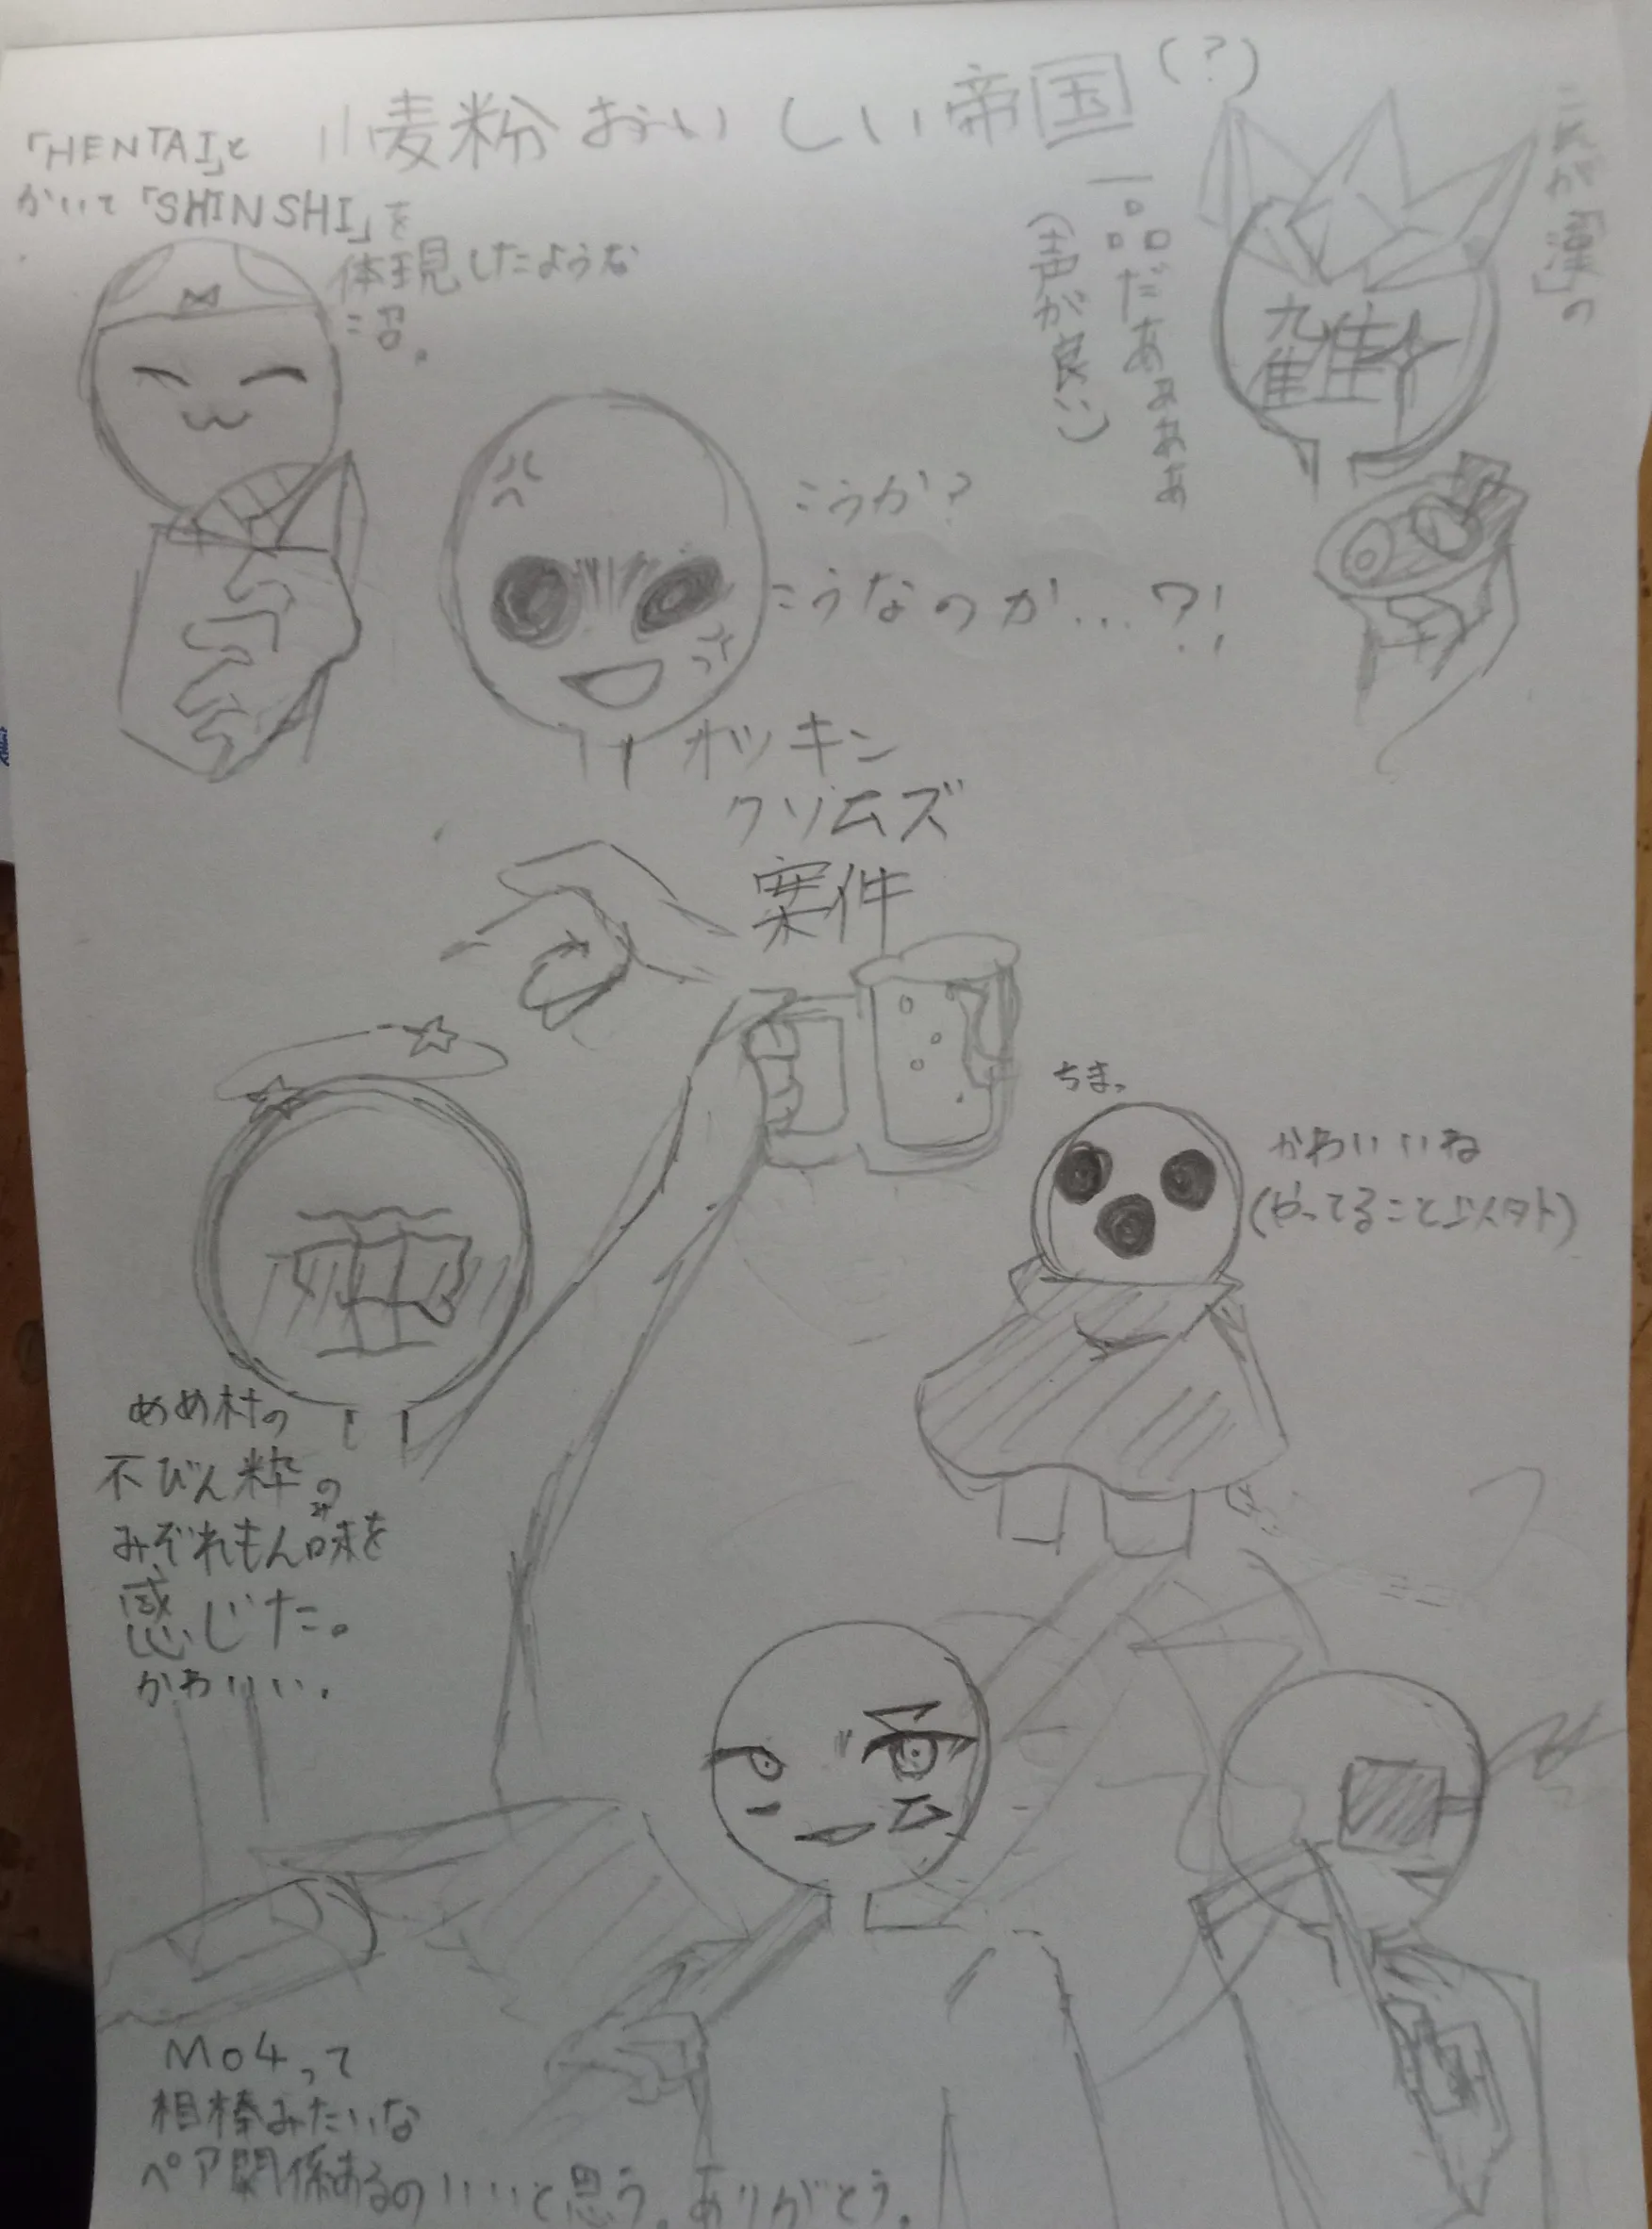 小麦粉おいしい帝国(?)
「HENTAI」と
かいて「SHINSHI」を
体現したような
沼。
これが「漢」の
一品だあぁぁぁぁ
(声が良い)
雑
こうか?
こうなのか…?!
オッキン
クソムズ
案件
ちまっ
かわいいね
(やってること以外)
めめ村の
不びん粋の
みぞれもん味を
感じた。
かわいい。
M04って
相棒みたいな
ペア関係あるのいいと思う。ありがとう。